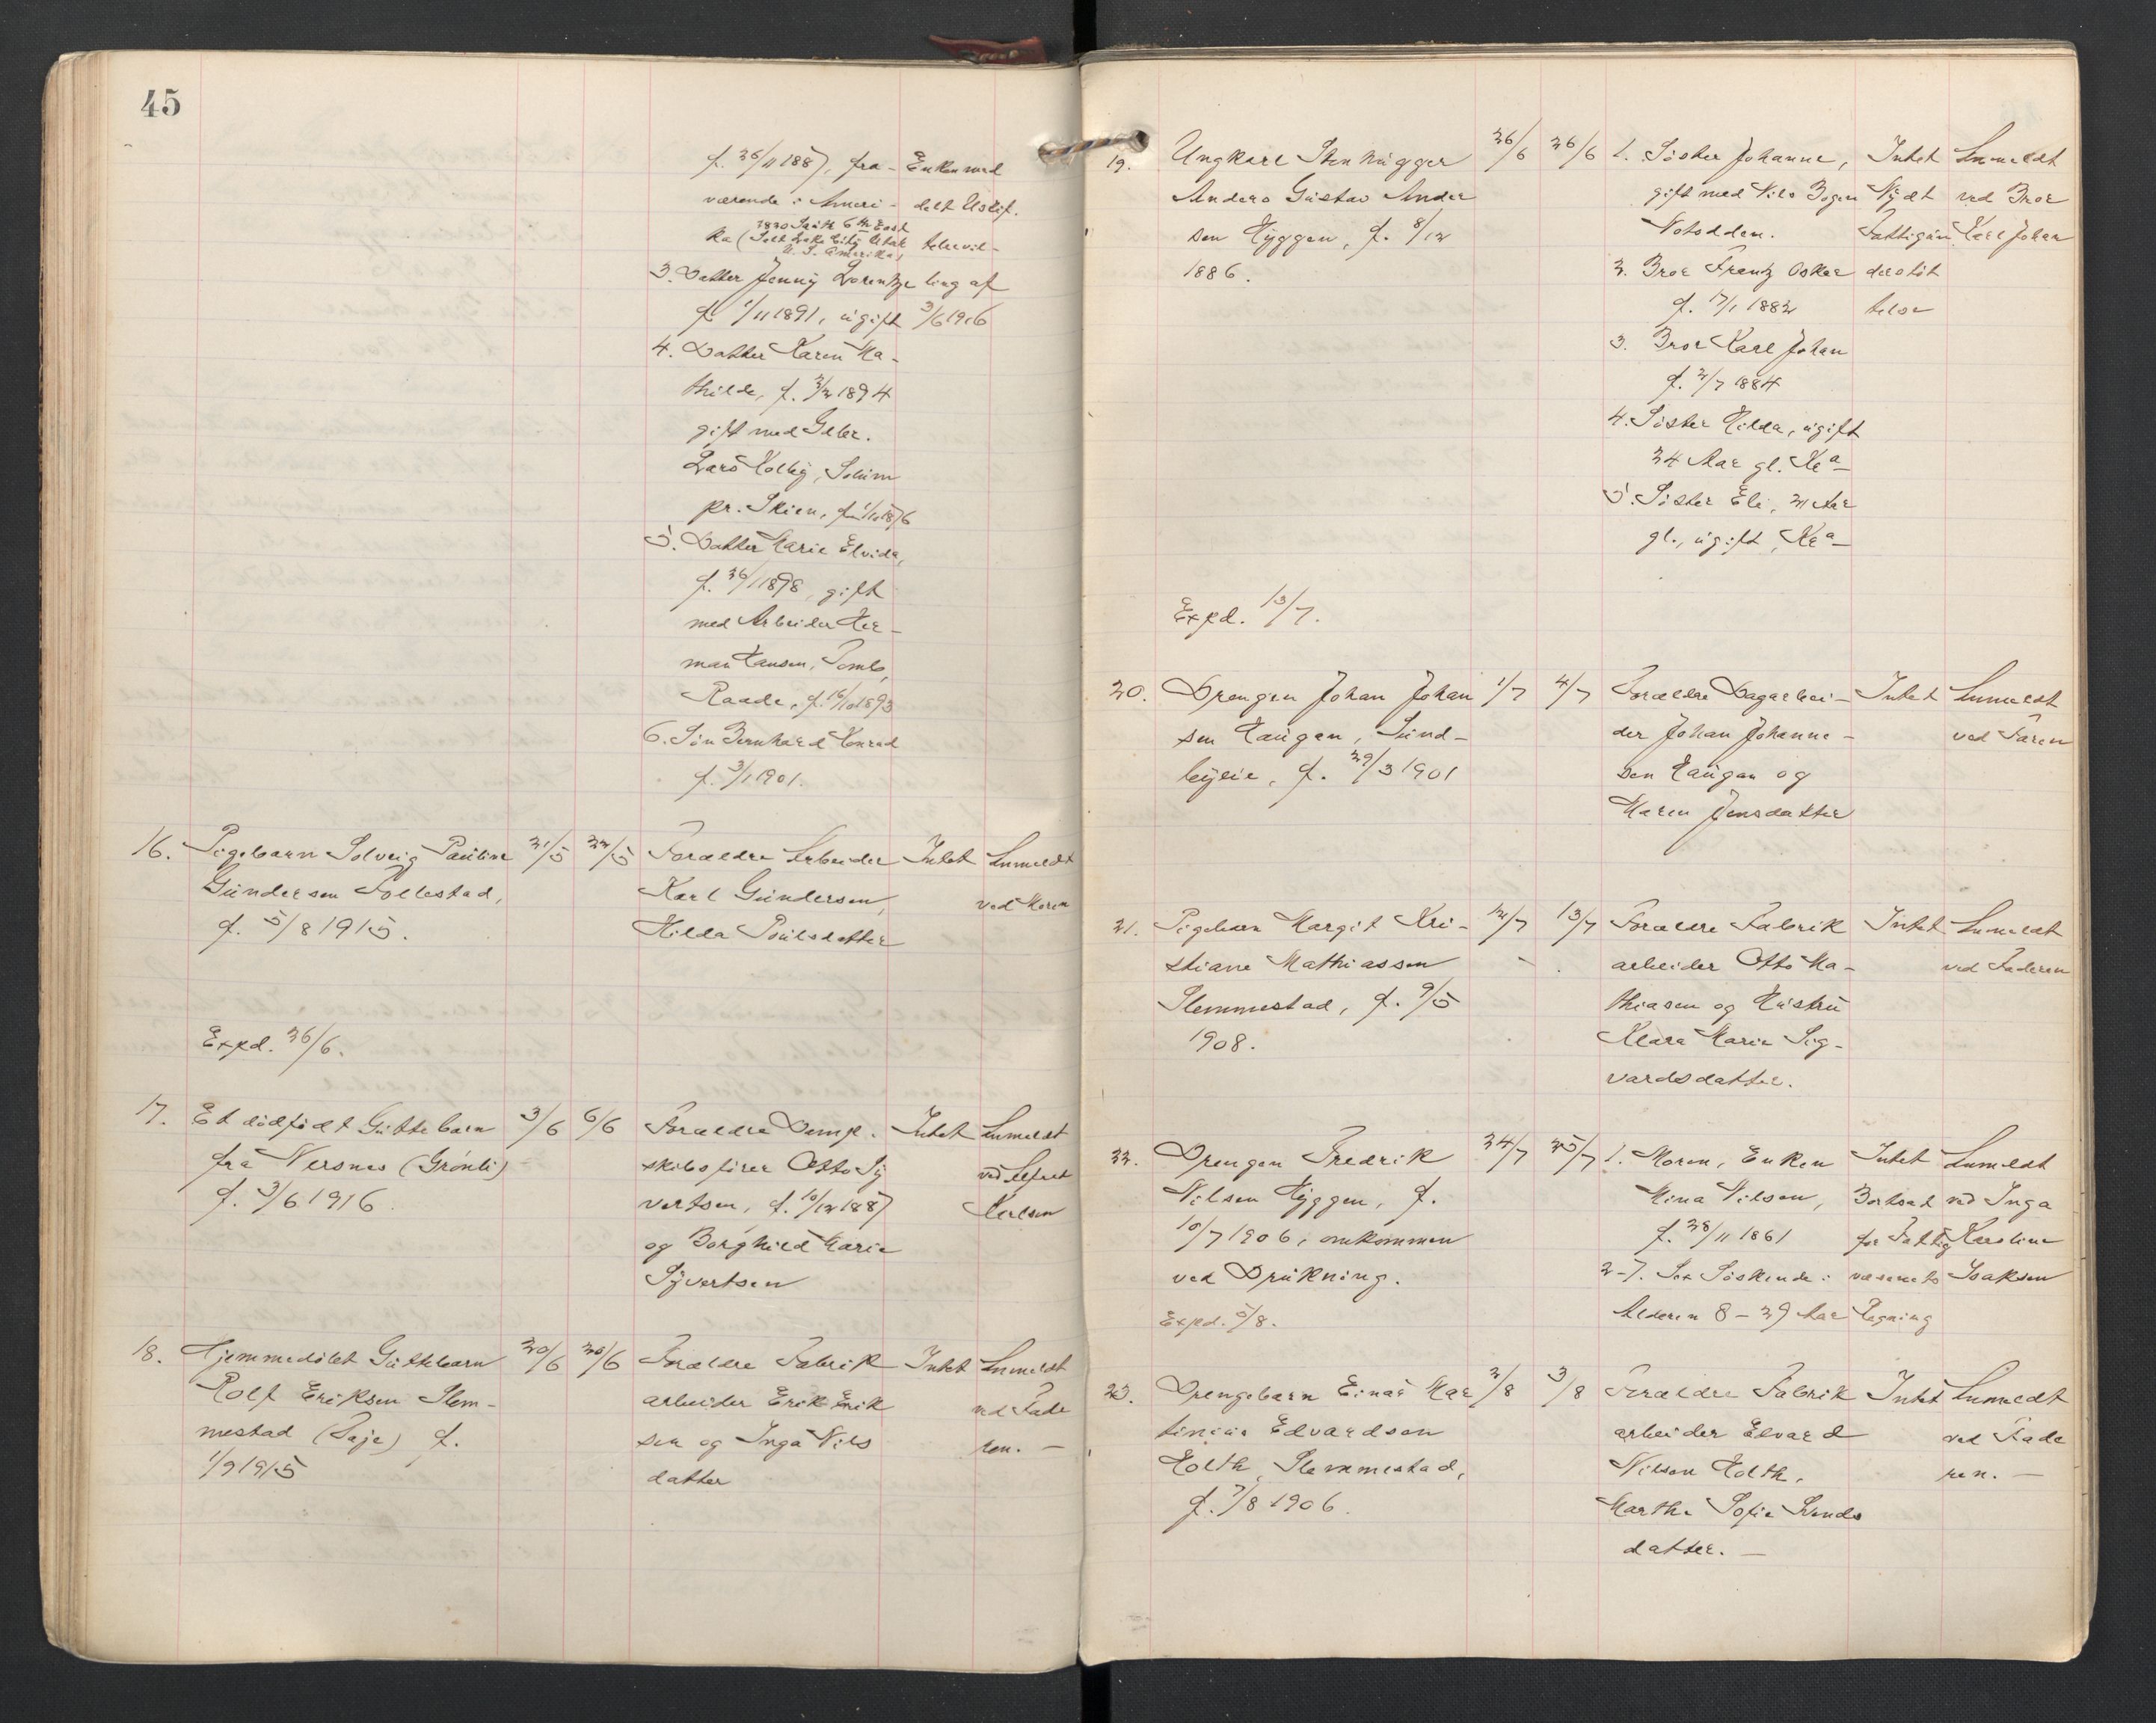 45
f. 26/11 1887, fra-
værende i Ameri-
1220 South 6th East
ka (Salt Lake City Utah
U. S. Amerika)
3. Datter Jenny Lorentze
f. 1/11 1891, ugift
4. Datter Karen Ma-
thilde, f. 2/2 1894
gift med Gdbr.
Lars Kolby, Solum
pr. Skien, f. 1/10 1876
5. Datter Marie Elvida,
f. 26/1 1898, gift
med Arbeider Her-
man Hansen, Tomb,
Raade, f. 16/10 1893
6. Søn Bernhard Konrad
f. 3/1 1901.
Enken med
delt Uskif.
tebevil-
ling af
3/6 1916
16. Pigebarn Solveig Pauline
Gundersen Follestad,
f. 5/8 1915.
Expd. 26/6.
21/5 22/5
Forældre Arbeider
Karl Gundersen,
Hilda Poulsdatter
Intet
Anmeldt
ved Moren
17. Et dödfödt Guttebarn
fra Nersnes (Grönli)
f. 3/6 1916
3/6 6/6
Forældre Damp-
skibsfører Otto Sy
vertsen, f. 10/12 1887
og Borghild Marie
Syvertsen
Intet
Anmeldt
ved Alfred
Karlsen
18. Hjemmedøbt Guttebarn
Rolf Eriksen Slem-
mestad (Saje) f.
1/9 1915
20/6 20/6
Forældre Fabrik
arbeider Erik Erik
sen og Inga Nils
datter
Intet
Anmeldt
ved Fade
ren. —
19. Ungkarl Stenhugger
Anders Gustav Ander
sen Hyggen, f. 8/12
1886.
Expd. 13/7.
26/6 26/6
1. Søster Johanne,
gift med Nils Bogen
Notodden.
2. Bror Frantz Oskar
f. 17/1 1882
3. Bror Karl Johan
f. 2/7 1884
4. Søster Hilda, ugift
24 Aar gl. Kr.a
5. Søster Eli, 21 Aar
gl., ugift, Kr.a
Intet
Nydt
Fattigun
derstöt
telse
Anmeldt
ved Bror
Karl Johan
20. Drengen Johan Johan
sen Haugen, Sund-
byeie, f. 29/3 1901
1/7 4/7
Forældre Dagarbei-
der Johan Johanne-
sen Haugen og
Maren Jensdatter
Intet
Anmeldt
ved Faren
21. Pigebarn Margit Kri-
stiane Mathiassen
Slemmestad, f. 9/5
1908.
12/7 13/7
Forældre Fabrik
arbeider Otto Ma-
thiasen og Hustru
Klara Marie Sig-
vardsdatter.
Intet
Anmeldt
ved Faderen
22. Drengen Fredrik
Nilsen Hyggen, f.
10/7 1906, omkommen
ved Drukning.
Expd. 5/8.
24/7 25/7
1. Moren, Enken
Mina Nilsen,
f. 28/11 1861
2-7. Sex Söskende i
Alderen 8-29 Aar
Intet
Bortsat
for Fattig
væsenets
Regning
Anmeldt
ved Inga
Karoline
Isaksen
23. Drengebarn Einar Mar
tinius Edvardsen
Holth, Slemmestad,
f. 7/8 1906.
2/8 3/8
Forældre Fabrik
arbeider Edvard
Nilsen Holth,
Marthe Sofie Svends
datter. —
Intet
Anmeldt
ved Fade
ren. —